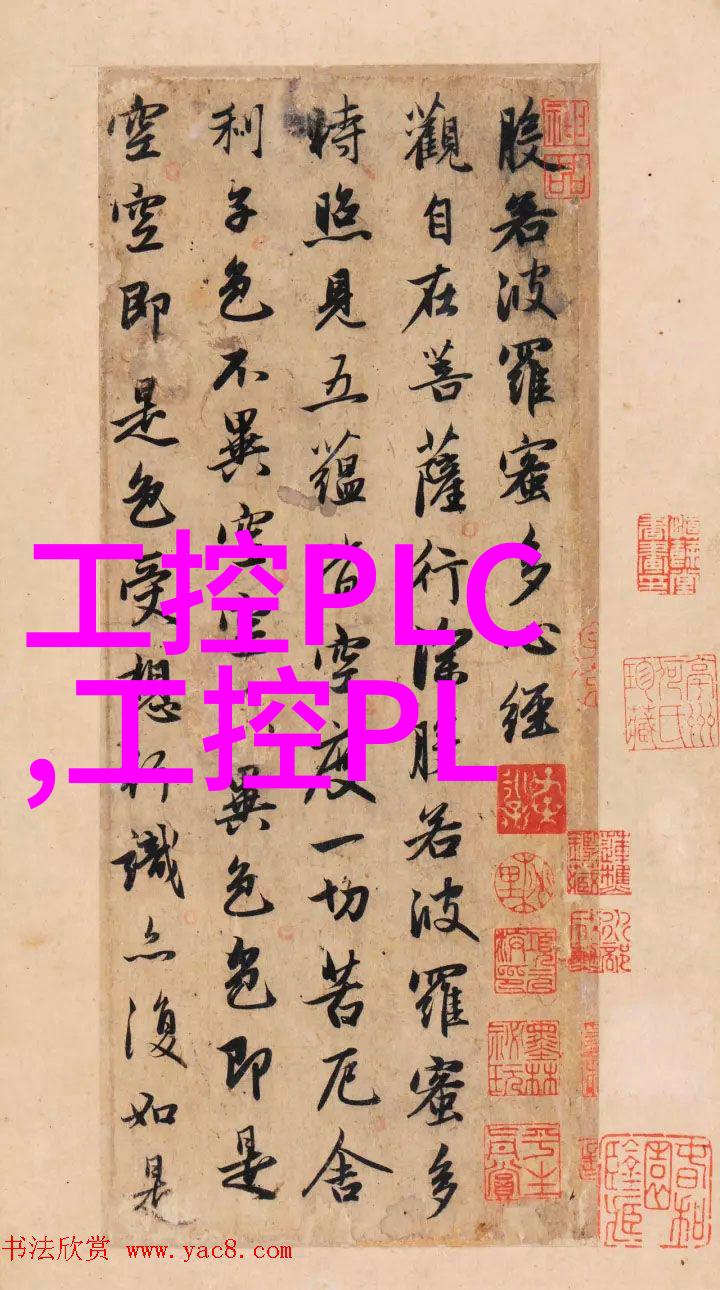 般若波羅蜜多心經
觀自在菩薩行深般若波羅蜜多
時照見五蘊皆空度一切苦厄舍
利子色不異空空異色色即是
空空即是色受想行識亦復如是
神品
墨林祕玩
工控PLC
,工控PL
书法欣赏 www.yac8.com